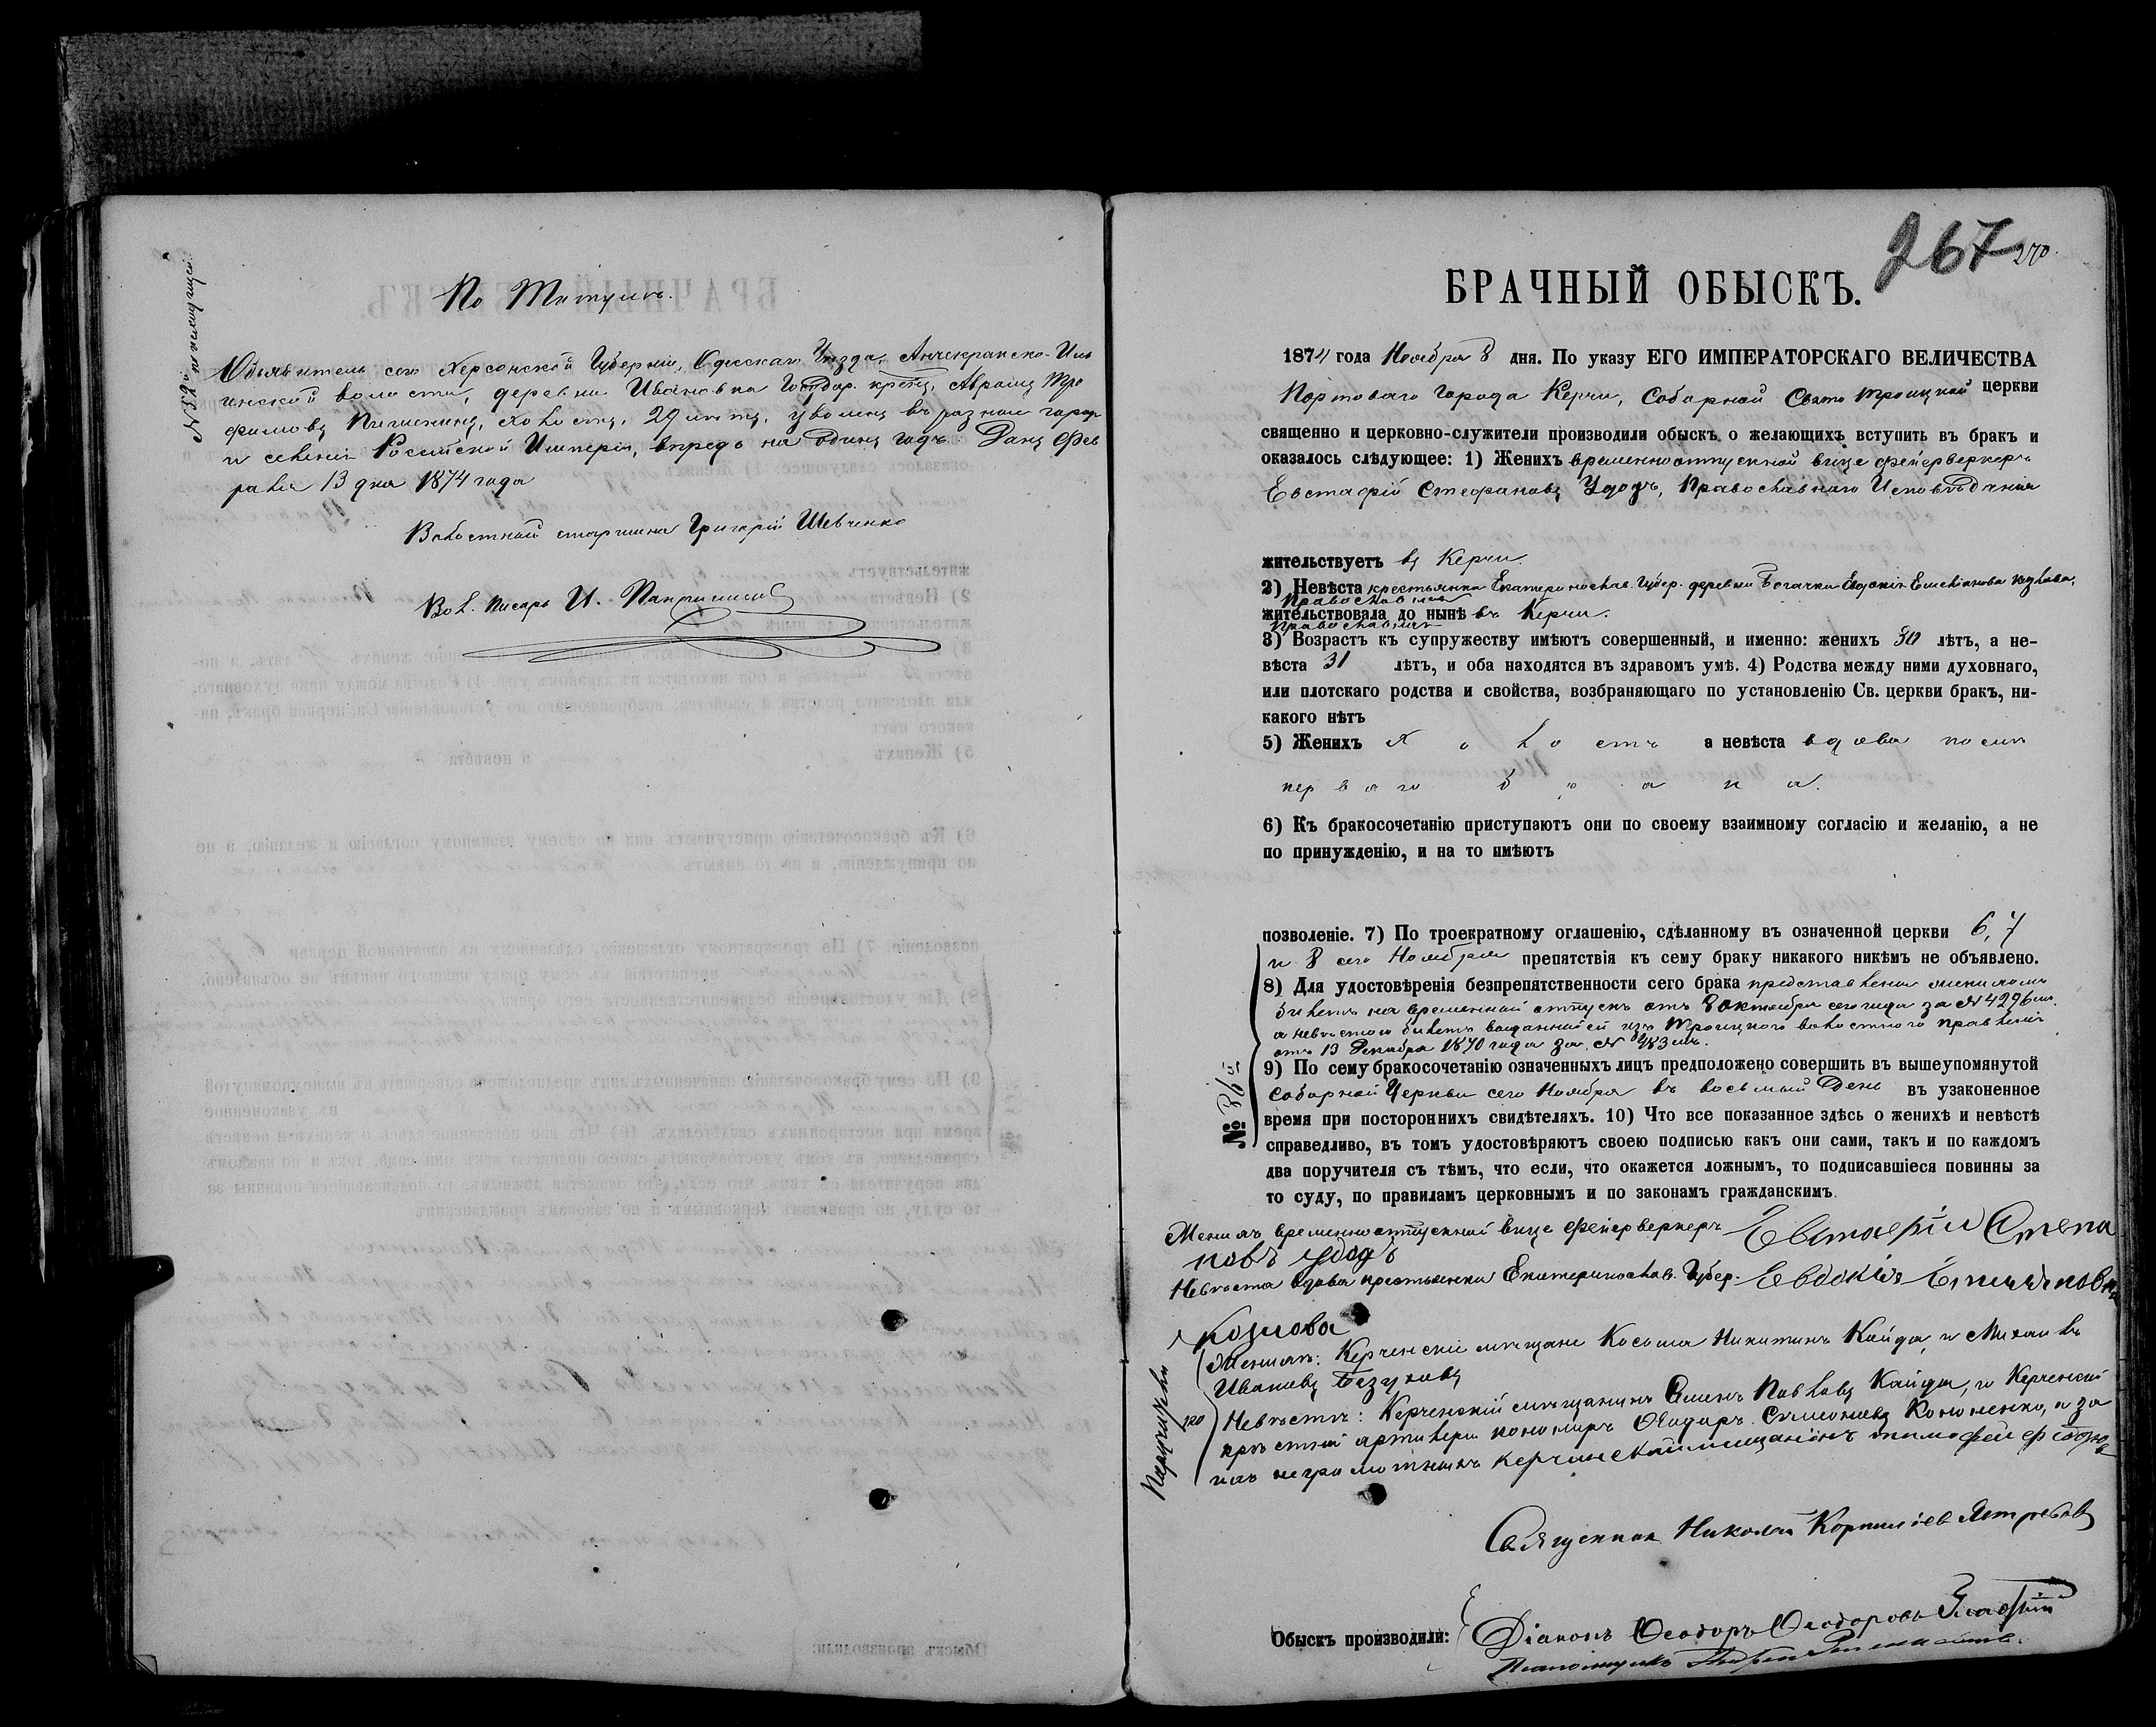 По Титулѣ.
Объявитель сего Херсонской Губерніи, Одесскаго Уѣзда, Анчекракско-Иль
инской волости, деревни Ивановка Государ. крест. Авраамъ Тро
фимовъ холостъ, 29 лѣтъ, уволенъ въ разные город
и селенія Россійской Имперіи, впредь на одинъ годъ. Данъ Фев
раля 13 дня 1874 года
Волостной старшина Григорій Шевченко
Вол. Писарь И.
267
270.
БРАЧНЫЙ ОБЫСКЪ.
1874 года Ноября 8 дня. По указу ЕГО ИМПЕРАТОРСКАГО ВЕЛИЧЕСТВА
Портоваго Города Керчи, Соборной Свято Троицкой церкви
священно и церковно-служители производили обыскъ о желающихъ вступить въ бракъ и
оказалось слѣдующее: 1) Женихъ временноотпускной вице фейерверкеръ
Евстафій Стефановъ Удодъ, Православнаго Исповѣданія
жительствуетъ въ Керчи.
2) Невѣста крестьянка Екатеринослав. Губер. деревни Богачки Евдокія Емеліанова Козлова,
Православная
жительствовала до нынѣ въ Керчи.
Православная
3) Возрастъ къ супружеству имѣютъ совершенный, и именно: женихъ 30 лѣтъ, а не-
вѣста 31 лѣтъ, и оба находятся въ здравомъ умѣ. 4) Родства между ними духовнаго,
или плотскаго родства и свойства, возбраняющаго по установленію Св. церкви бракъ, ни-
какого нѣтъ
5) Женихъ Холостъ а невѣста вдова послѣ
перваго брака.
6) Къ бракосочетанію приступаютъ они по своему взаимному согласію и желанію, а не
по принужденію, и на то имѣютъ
позволеніе. 7) По троекратному оглашенію, сдѣланному въ означенной церкви 6, 7
и 8 сего Ноября препятствія къ сему браку никакого никѣмъ не объявлено.
8) Для удостовѣренія безпрепятственности сего брака представлены женихомъ
билетъ на временный отпускъ отъ 8 октября сего года за № 4296мъ.
а невѣстою билетъ выданный ей изъ Троицкаго волостнаго правленія
отъ 13 Декабря 1870 года за №
9) По сему бракосочетанію означенныхъ лицъ предположено совершить въ вышеупомянутой
Соборной Церкви сего Ноября въ восьмый День въ узаконенное
время при постороннихъ свидѣтеляхъ. 10) Что все показанное здѣсь о женихѣ и невѣстѣ
справедливо, въ томъ удостовѣряютъ своею подписью какъ они сами, такъ и по каждомъ
два поручителя съ тѣмъ, что если, что окажется ложнымъ, то подписавшіеся повинны за
то суду, по правиламъ церковнымъ и по законамъ гражданскимъ.
Женихъ временноотпускный вице фейерверкеръ Евстафій Степа
новъ Удодъ
Невѣста вдова крестьянка Екатеринослав. Губер. Евдокія Емильянова
Козлова
Поручители по
Женихѣ: Керченскіе мѣщане Косьма Никитинъ Кайда, и Михаилъ
Ивановъ Безуховъ
Невѣстѣ: Керченскій мѣщанинъ Павловъ Кайда, и Керченской
крѣпостной артилери Ѳеодоръ Симеоновъ Кононенко, а за
нихъ неграмотныхъ керчинскаймищанинъ тимофей
Священник Николай Корнилиев Ястребовъ
Обыскъ производили:
Діаконъ Ѳеодоръ Ѳеодоровъ